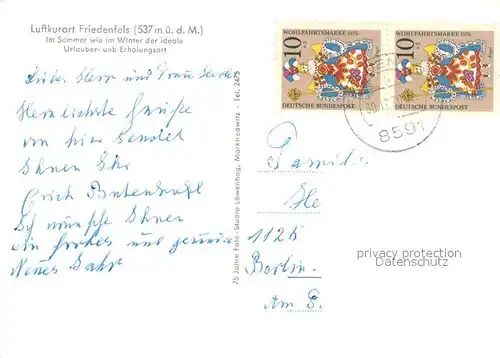 Luftkurort Friedenfels (537 m. ü. d. M.)
Im Sommer wie im Winter der ideale
Urlauber- und Erholungsort
Herr und Frau
Herzlichste Grüße
von hier sendet
Ihnen
Erich
Ich wünsche Ihnen
ein frohes und gesundes
Neues Jahr
75 Jahre Foto-Studio Löwenhag, Marktredwitz - Tel. 2675
10 WOHLFAHRTSMARKE 1970
DEUTSCHE BUNDESPOST
10 WOHLFAHRTSMARKE 1970
DEUTSCHE BUNDESPOST
8591
Familie
1125
Berlin
privacy protection
Datenschutz